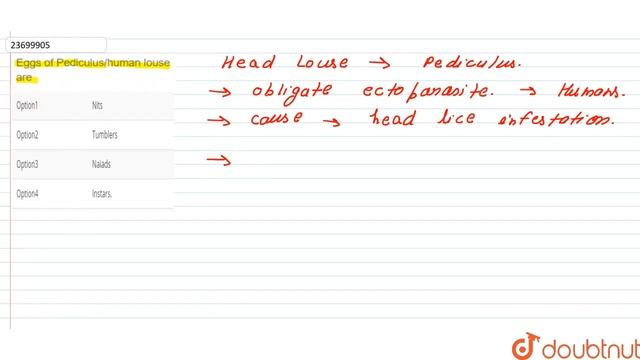 23699905
Eggs of Pediculus/human louse
are
Option1 Nits
Option2 Tumblers
Option3 Naiads
Option4 Instars.
Head Louse → Pediculus.
→ obligate ectoparasite. → Humans.
→ cause → head lice infestation.
→
doubtnut